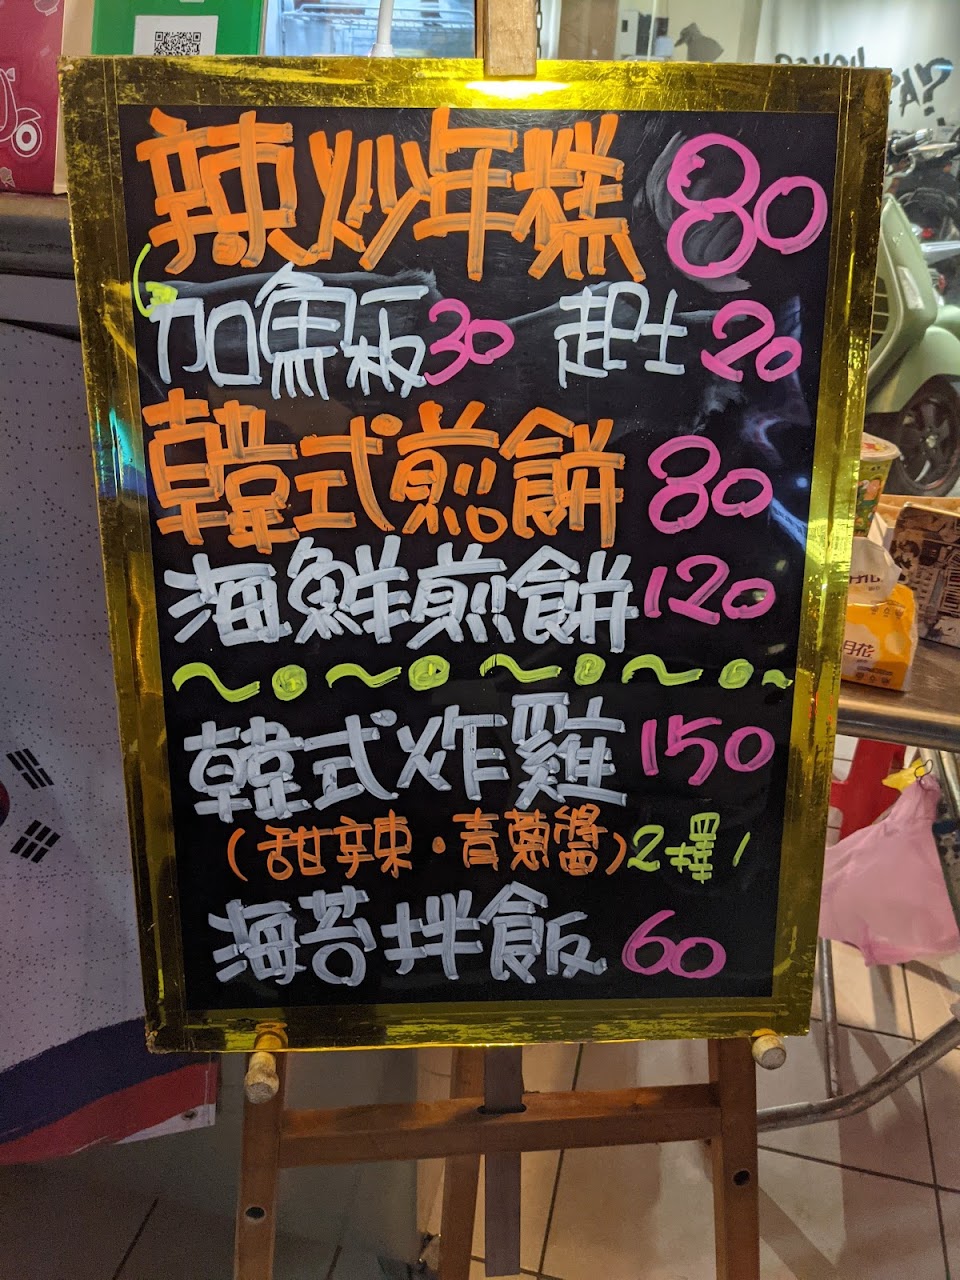 辣炒年糕 80
加魚板30 起士 20
韓式煎餅 80
海鮮煎餅 120
韓式炸雞 150
(甜辣·青蔥醬)2擇1
海苔拌飯 60
月花